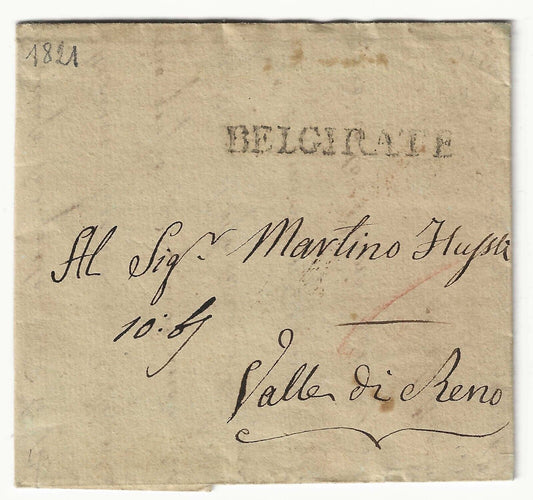 1821
BELGIRATE
Al Sig.r Martino
10: 
Valle di Reno